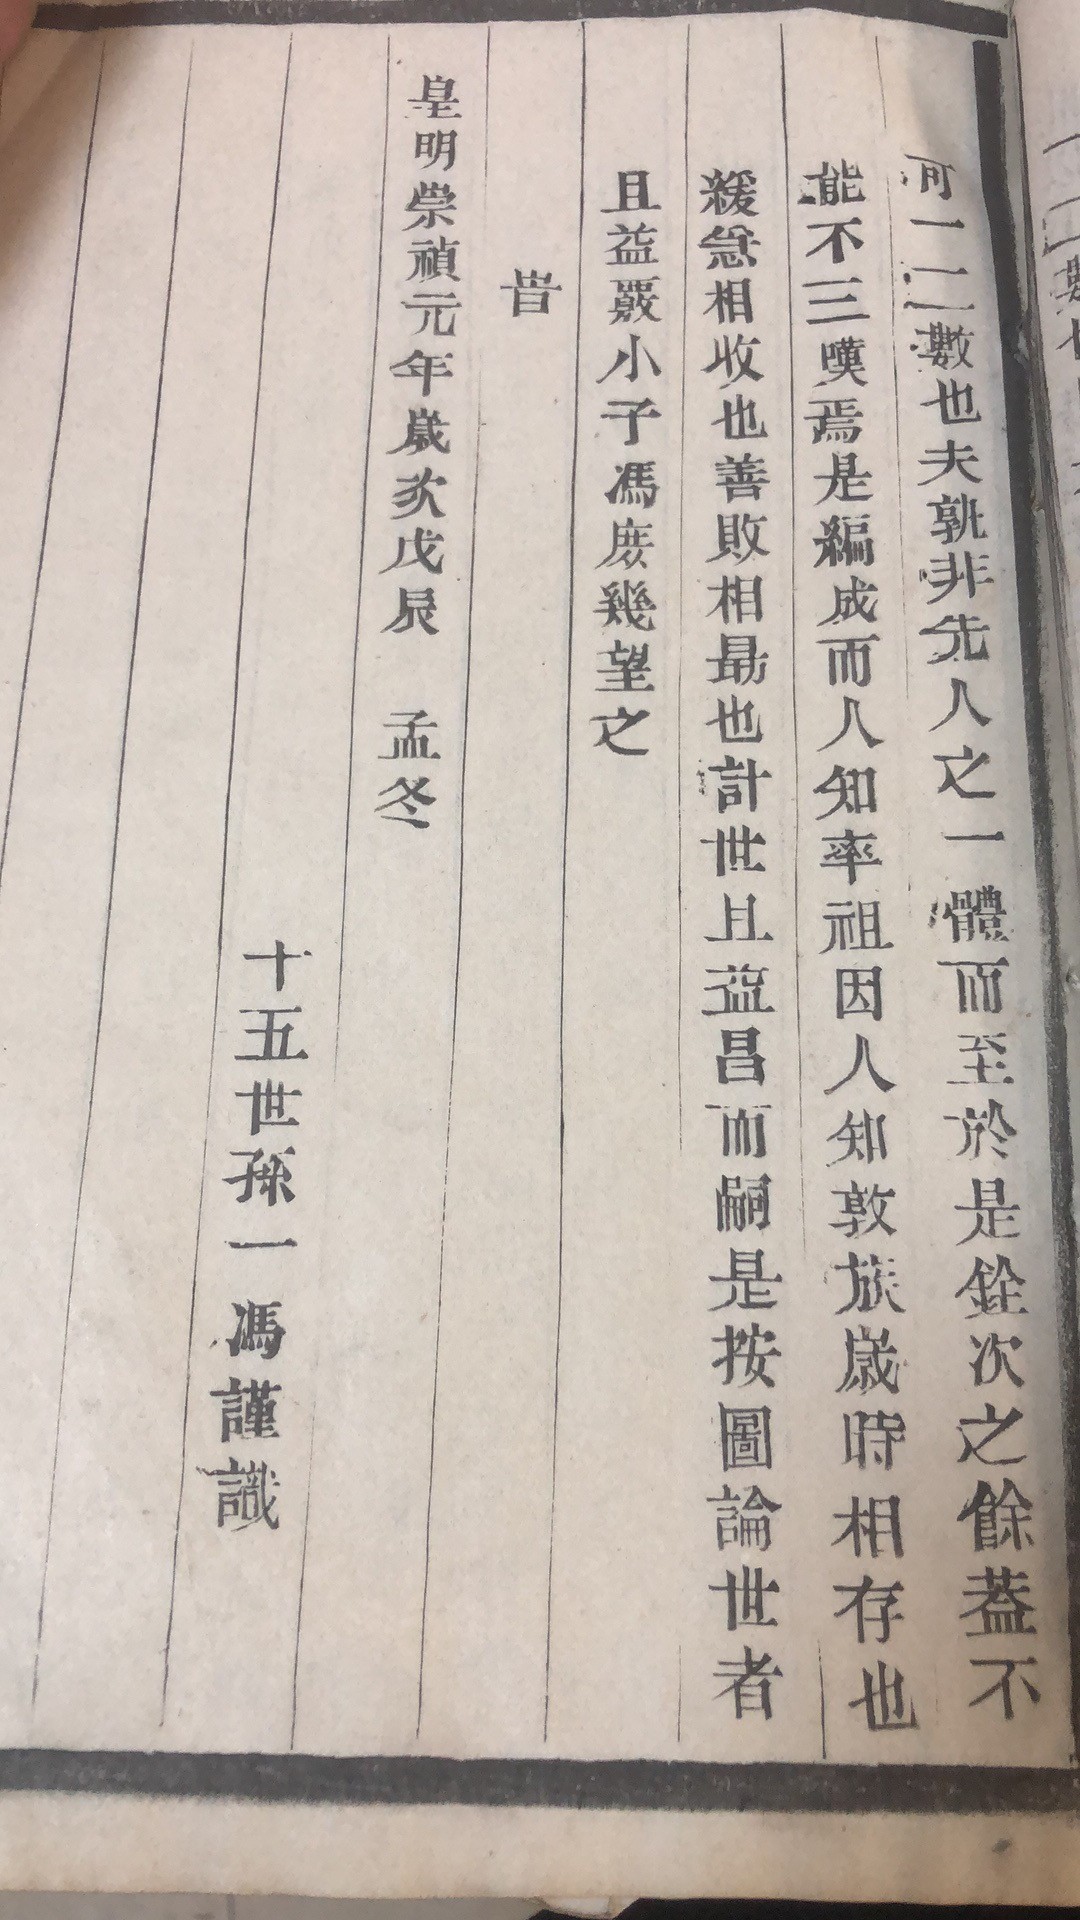 可一二數也夫孰非先人之一體而至於是銓次之餘蓋不
能不三嘆焉是編成而人知率祖因人知敦族歲時相存也
緩急相收也善敗相勗也計世且益昌而嗣是按圖論世者
且益覈小子馮庶幾望之
旹
皇明崇禎元年歲次戊辰 孟冬
十五世孫一馮謹識